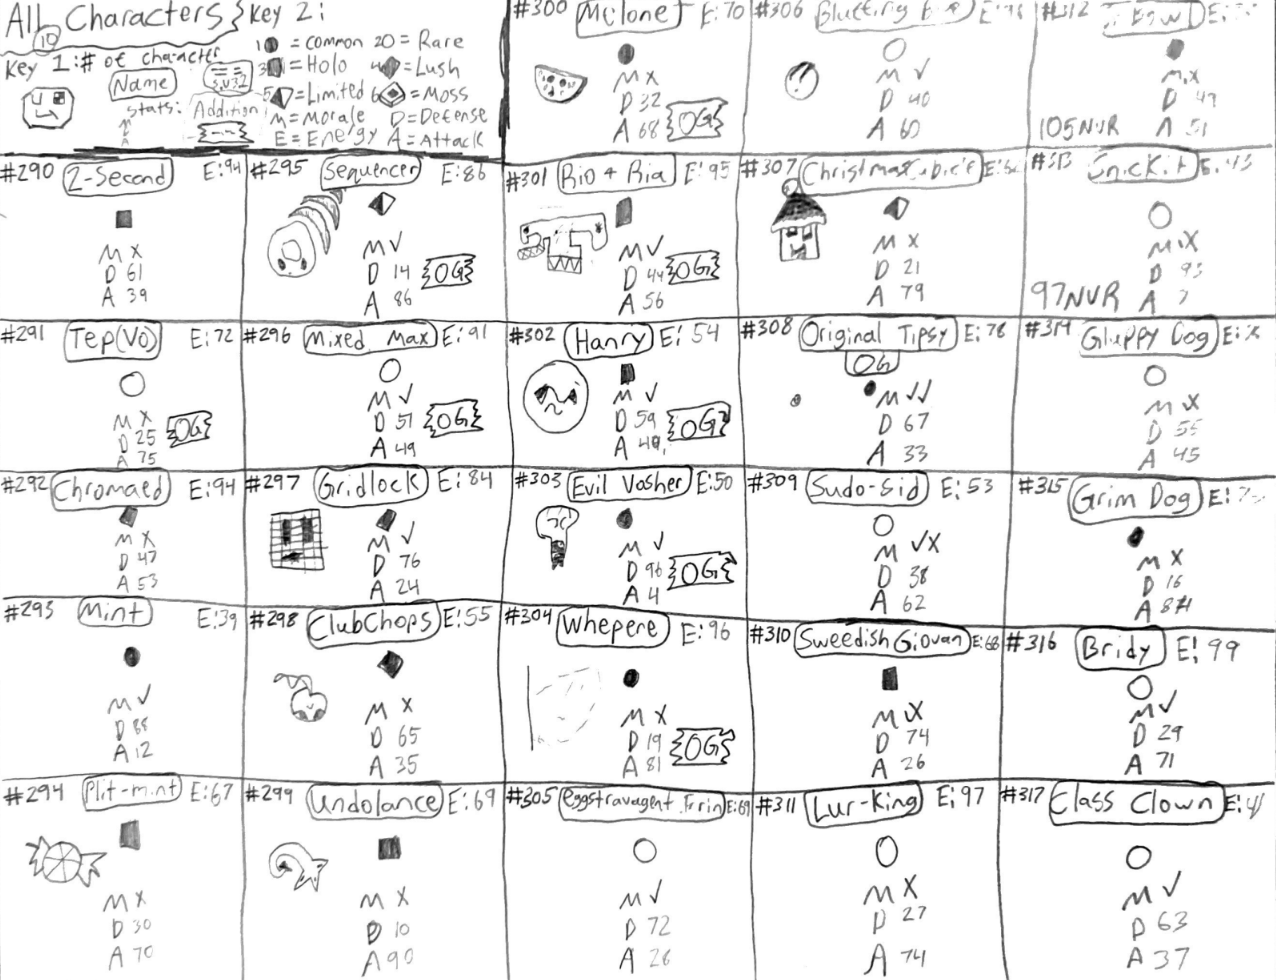 All Characters
10
Key 2:
1 = Common 2 = Rare
3 = Holo 4 = Lush
5 = Limited 6 = Moss
M = Morale D = Defense
E = Energy A = Attack
Key 1: # of character
Name
stats:
Addition
#290 2-Second E:94
M X
D 61
A 39
#291 Tep(Vo) E:72
M X
D 25
A 75
OG
#292 Chromaed E:94
M X
D 47
A 53
#293 Mint E:39
M ✓
D 88
A 12
#294 Plit-mint E:67
M X
D 30
A 70
#295 Sequencer E:86
M ✓
D 14
A 86
OG
#296 Mixed Max E:91
M ✓
D 51
A 49
OG
#297 Gridlock E:84
M ✓
D 76
A 24
#298 ClubChops E:55
M X
D 65
A 35
#299 Undolance E:69
M X
D 10
A 90
#300 Mclone E:70
M X
D 32
A 68
OG
#301 Rio + Ria E:95
M ✓
D 44
A 56
OG
#302 Hanry E:54
M ✓
D 59
A 40
OG
#303 Evil Vosher E:50
M ✓
D 96
A 4
OG
#304 Whepere E:96
M X
D 19
A 81
OG
#305 eggstravagent Frrin E:69
M ✓
D 72
A 28
#306
M ✓
D 40
A 60
#307 Christmas
M X
D 21
A 79
#308 Original Tipsy E:78
OG
M ✓✓
D 67
A 33
#309 Sudo-Sid E:53
M ✓X
D 38
A 62
#310 Sweedish Giovan E:68
M ✓X
D 74
A 26
#311 Lur-King E:97
M X
D 27
A 74
#312
D 49
A 51
105NVR
#313 E:43
97NVR
#314 Gluppy Dog
D 55
A 45
#315 Grim Dog
M X
D 16
A 84
#316 Bridy E:99
M ✓
D 29
A 71
#317 Class Clown
M ✓
D 63
A 37